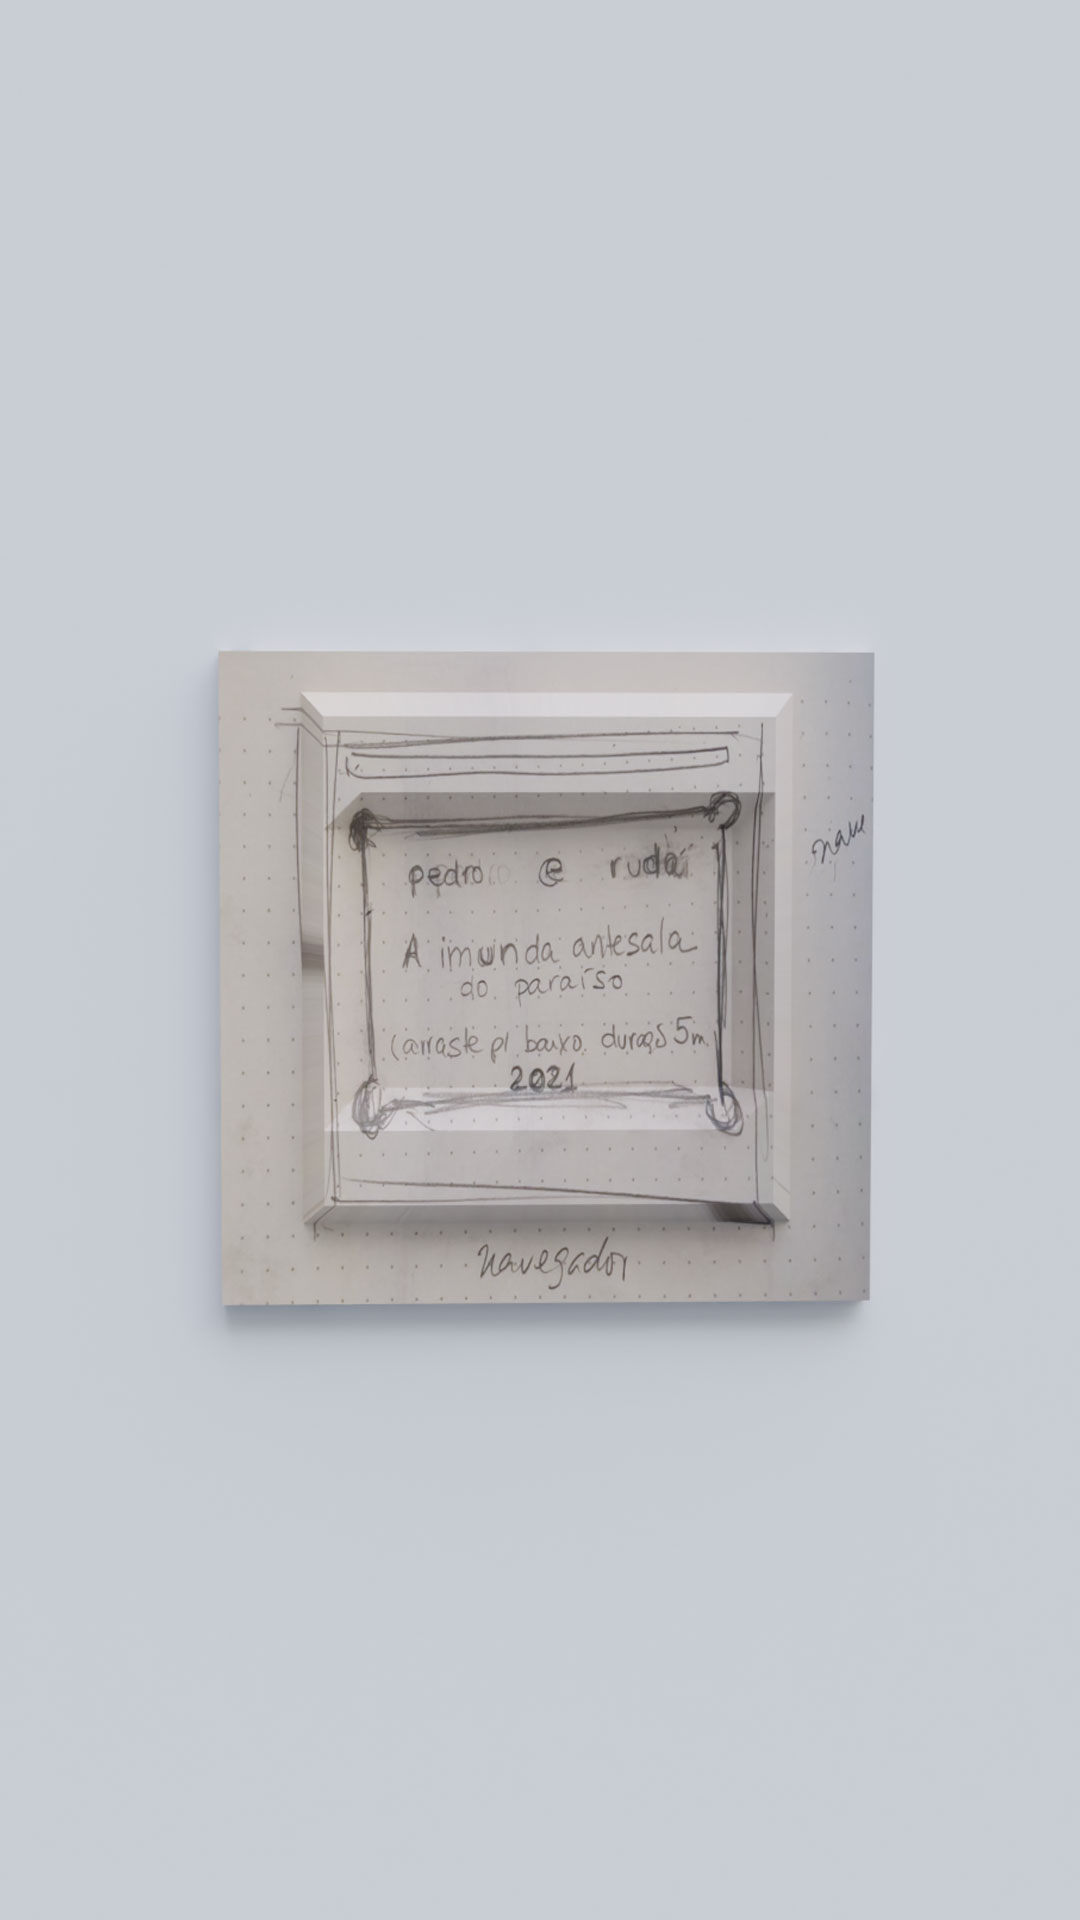 pedro e rudá
A imunda antesala
do paraíso
(arraste p/ baixo. duração 5m.
2021
navegador